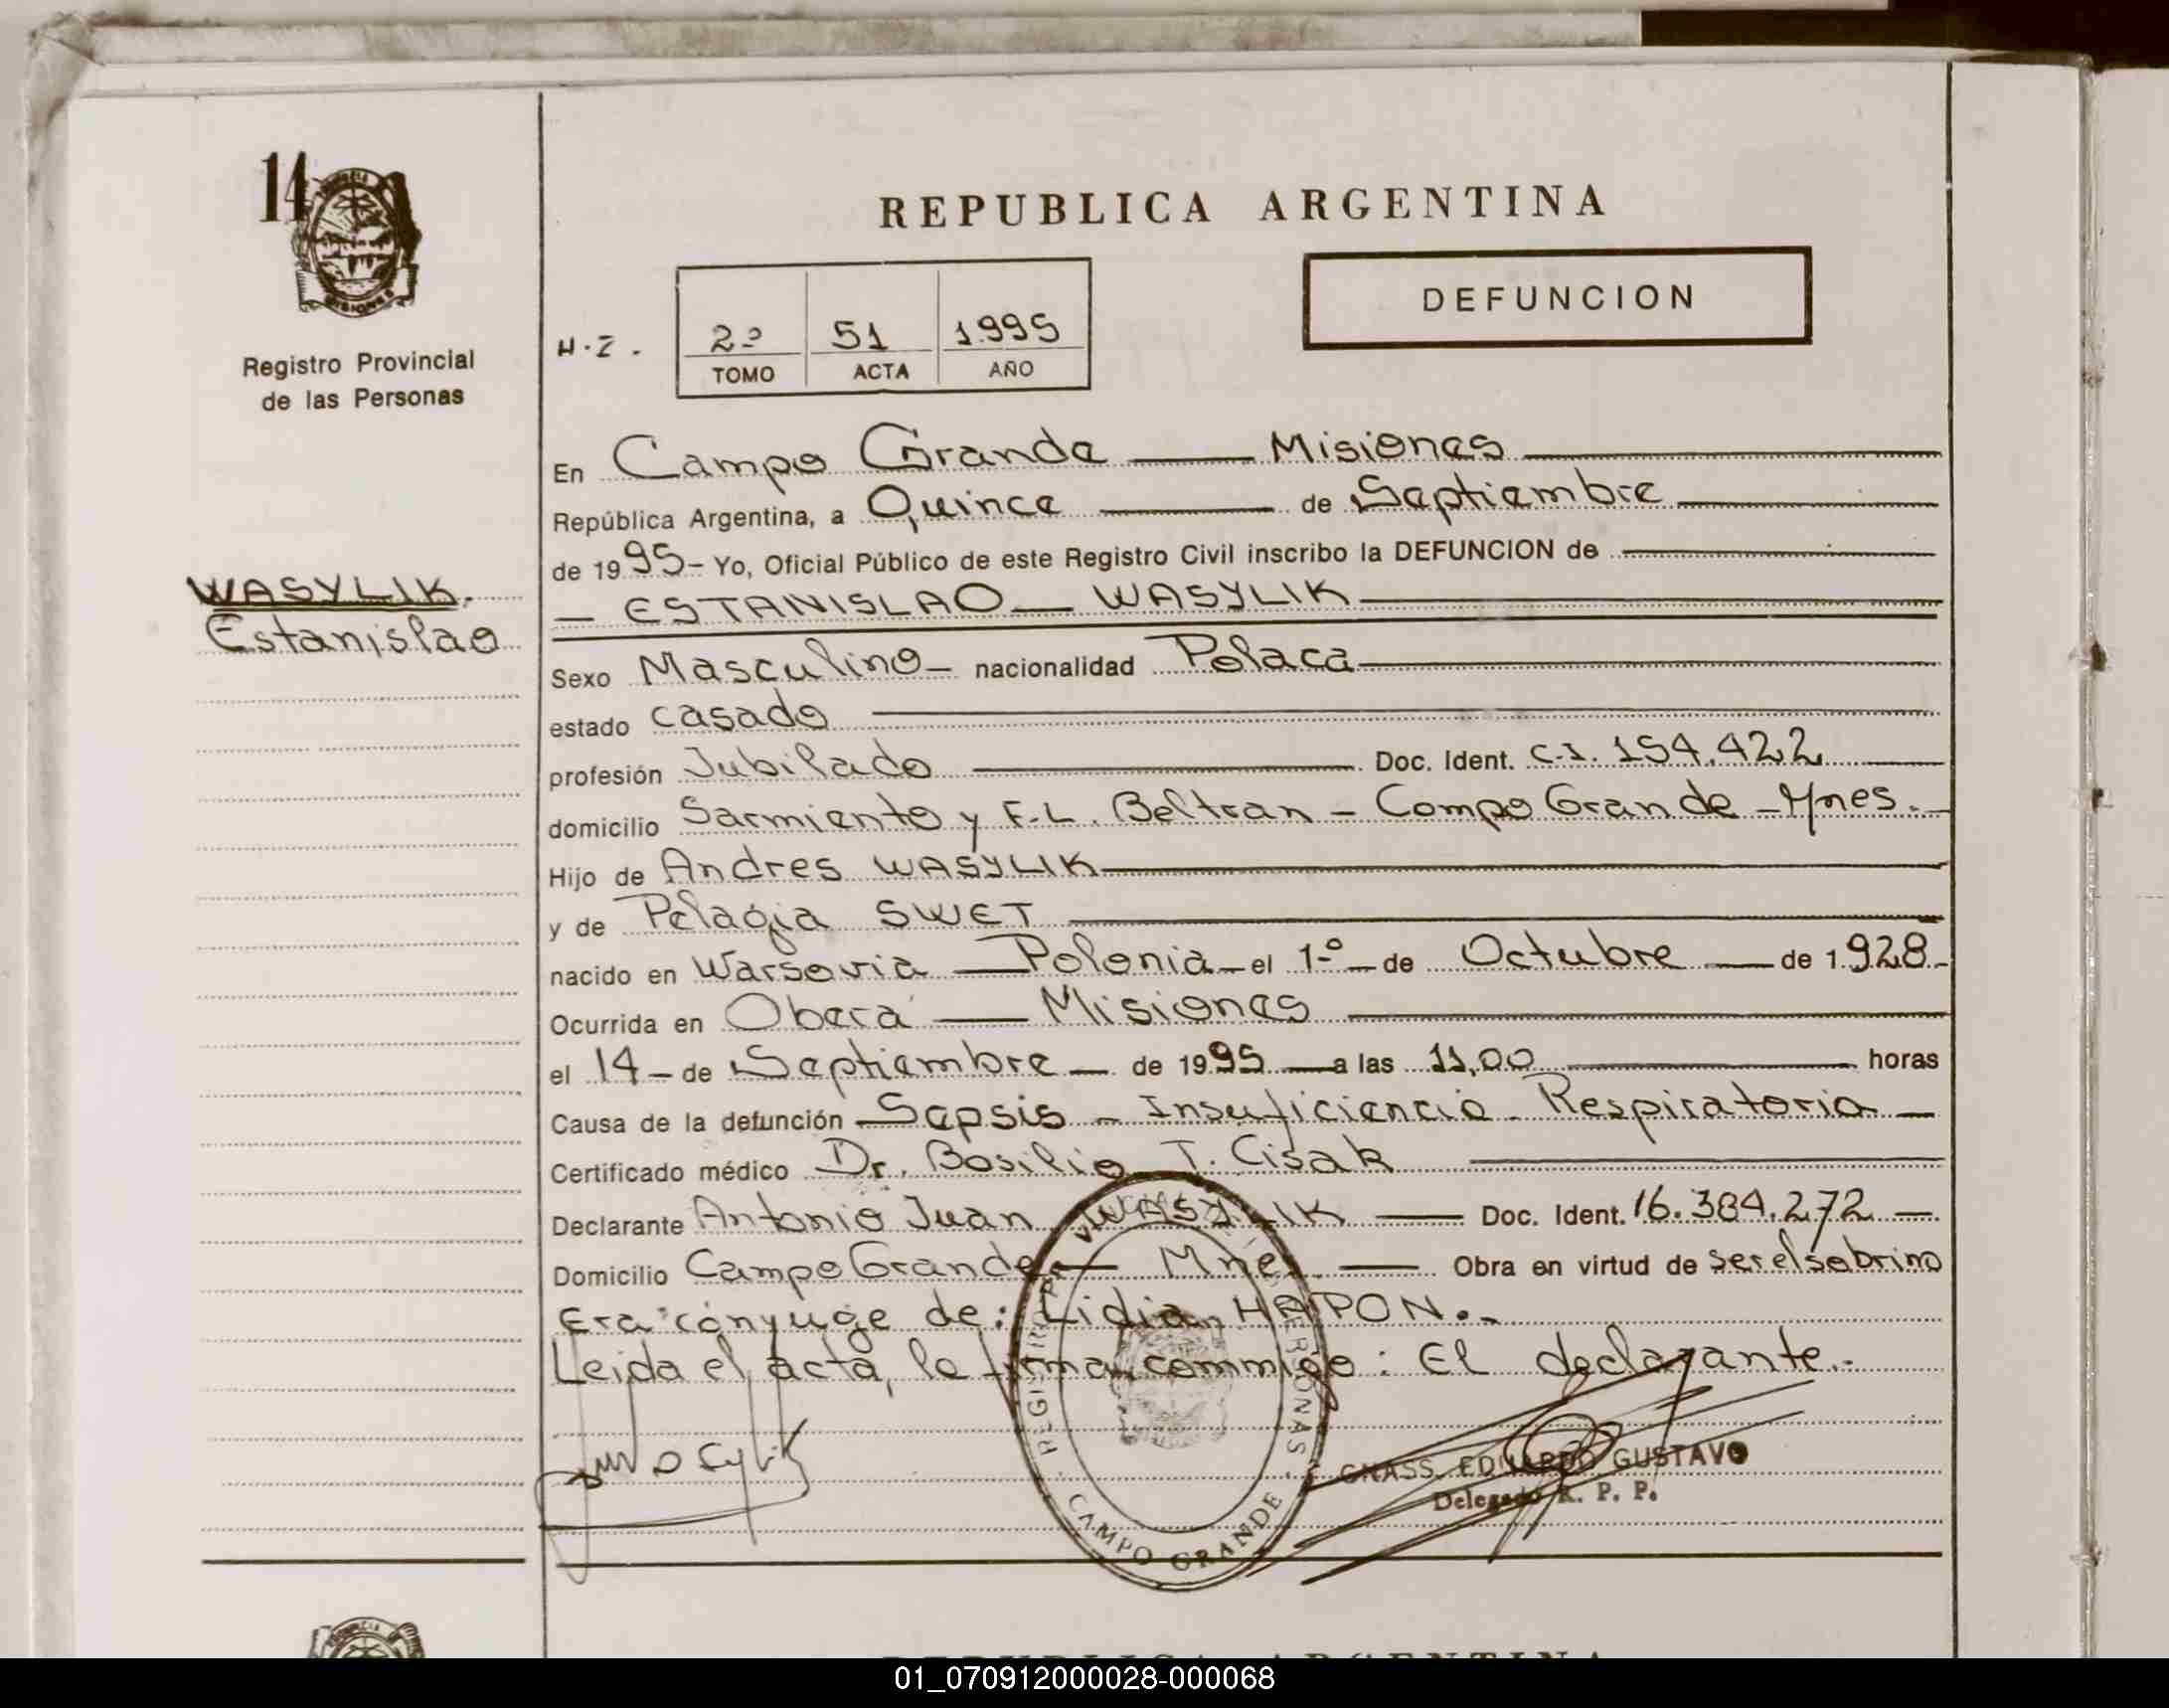 14
MISIONES
Registro Provincial
de las Personas
WASYLIK.
Estanislao
REPUBLICA ARGENTINA
DEFUNCION
2º 51 1.995
TOMO ACTA AÑO
En Campo Grande — Misiones
República Argentina, a Quince — de Septiembre
de 1995- Yo, Oficial Público de este Registro Civil inscribo la DEFUNCION de
— ESTANISLAO — WASYLIK
Sexo Masculino - nacionalidad Polaca
estado casado
profesión Jubilado — Doc. Ident. C.I. 154.422
domicilio Sarmiento y F.L. Beltran - Campo Grande - Mnes.
Hijo de Andres WASYLIK
y de Pelagia SWET
nacido en Warsovia — Polonia - el 1º - de Octubre — de 1.928-
Ocurrida en Oberá — Misiones
el 14 - de Septiembre — de 1995 — a las 11,00 — horas
Causa de la defunción — Sepsis - Insuficiencia Respiratoria —
Certificado médico Dr. Bosilio T. Cisak
Declarante Antonio Juan WASYLIK — Doc. Ident. 16.384.272 —
Domicilio Campo Grande — Mnes. — Obra en virtud de ser el sobrino
Era cónyuge de: Lidia HAPON.-
Leida el acta, la firma conmigo: El declarante.-
REGISTRO PROVINCIAL DE LAS PERSONAS
CAMPO GRANDE
GNASS EDUARDO GUSTAVO
Delegado R. P. P.
REPUBLICA ARGENTINA
01_070912000028-000068